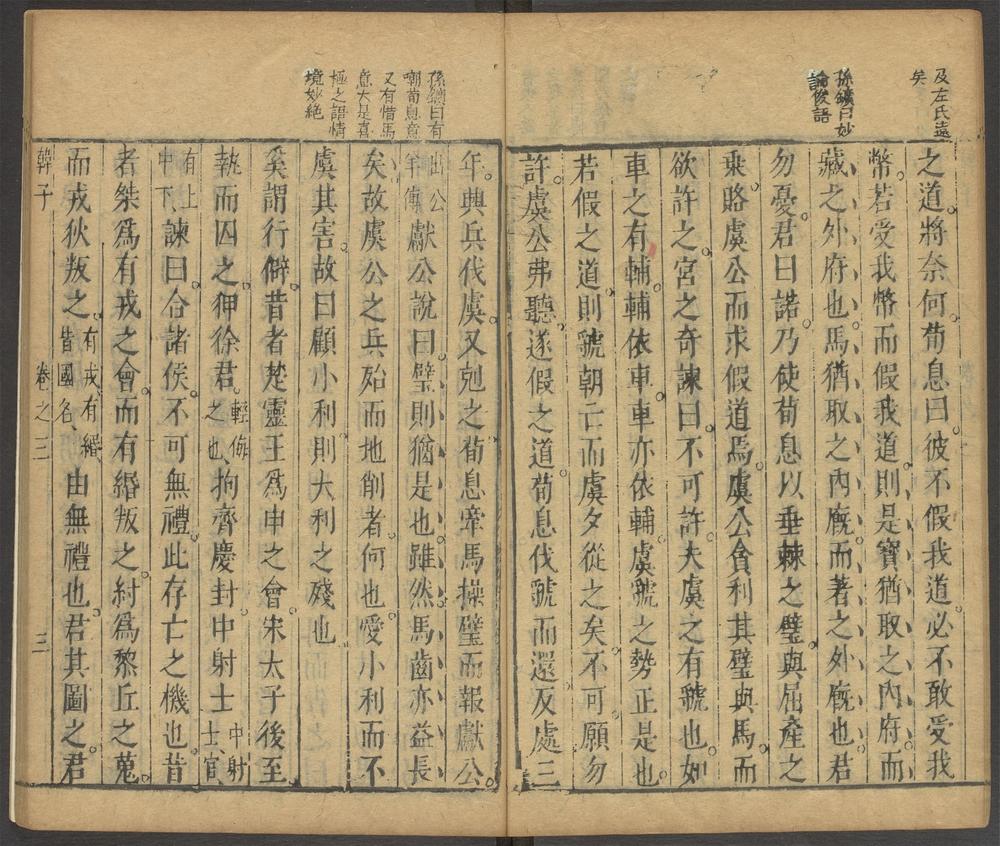 及左氏遠
矣
孫鑛曰妙
論俊語
之道將奈何荀息曰彼不假我道必不敢受我
幣若受我幣而假我道則是寶猶取之內府而
藏之外府也馬猶取之內廐而著之外廐也君
勿憂君曰諾乃使荀息以垂棘之璧與屈產之
乘賂虞公而求假道焉虞公貪利其璧與馬而
欲許之宮之奇諫曰不可許夫虞之有虢也如
車之有輔輔依車車亦依輔虞虢之勢正是也
若假之道則虢朝亡而虞夕從之矣不可願勿
許虞公弗聽遂假之道荀息伐虢而還反處三
孫鑛曰有
嘲荀息意
又有惜馬
意大是喜
極之語情
境妙絕
年興兵伐虞又剋之荀息牽馬操璧而報獻公
出公
羊傳獻公說曰璧則猶是也雖然馬齒亦益長
矣故虞公之兵殆而地削者何也愛小利而不
虞其害故曰顧小利則大利之殘也
奚謂行僻昔者楚靈王爲申之會宋太子後至
執而囚之狎徐君輕侮
之也拘齊慶封中射士中射
士官
有上
中下諫曰合諸侯不可無禮此存亡之機也昔
者桀爲有戎之會而有緡叛之紂爲黎丘之蒐
而戎狄叛之有戎有緡
皆國名由無禮也君其圖之君
韓子
卷之三
三